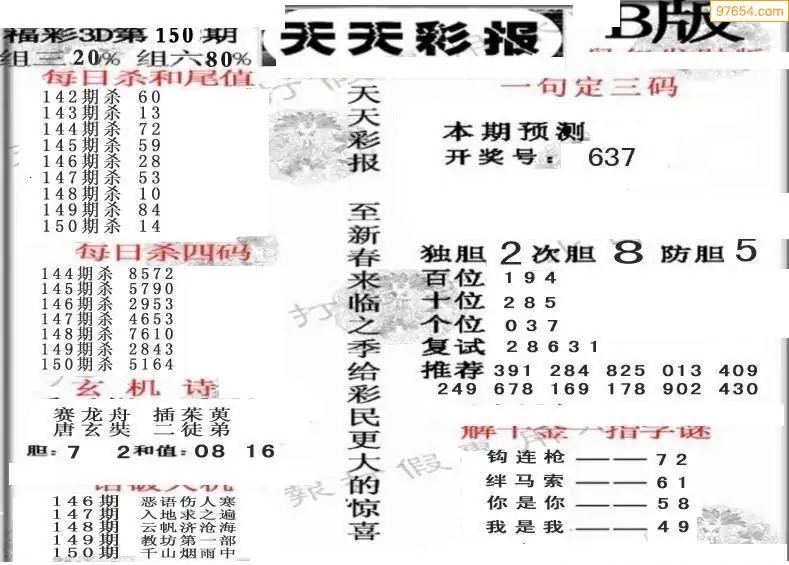 97654.com
福彩3D第150期
天天彩报
B版
组三20% 组六80%
每日杀和尾值
142期杀 60
143期杀 13
144期杀 72
145期杀 59
146期杀 28
147期杀 53
148期杀 10
149期杀 84
150期杀 14
每日杀四码
144期杀 8572
145期杀 5790
146期杀 2953
147期杀 4653
148期杀 7610
149期杀 2843
150期杀 5164
玄机诗
赛龙舟 插茱萸
唐玄奘 二徒弟
胆:7 2和值:08 16
146期 恶语伤人寒
147期 入地求之遍
148期 云帆济沧海
149期 教坊第一部
150期 千山烟雨中
天天彩报 至新春来临之季给彩民更大的惊喜
一句定三码
本期预测
开奖号: 637
独胆 2 次胆 8 防胆 5
百位 194
十位 285
个位 037
复试 28631
推荐 391 284 825 013 409
249 678 169 178 902 430
解千金一指字谜
钩连枪——— 72
绊马索——— 61
你是你——— 58
我是我——— 49